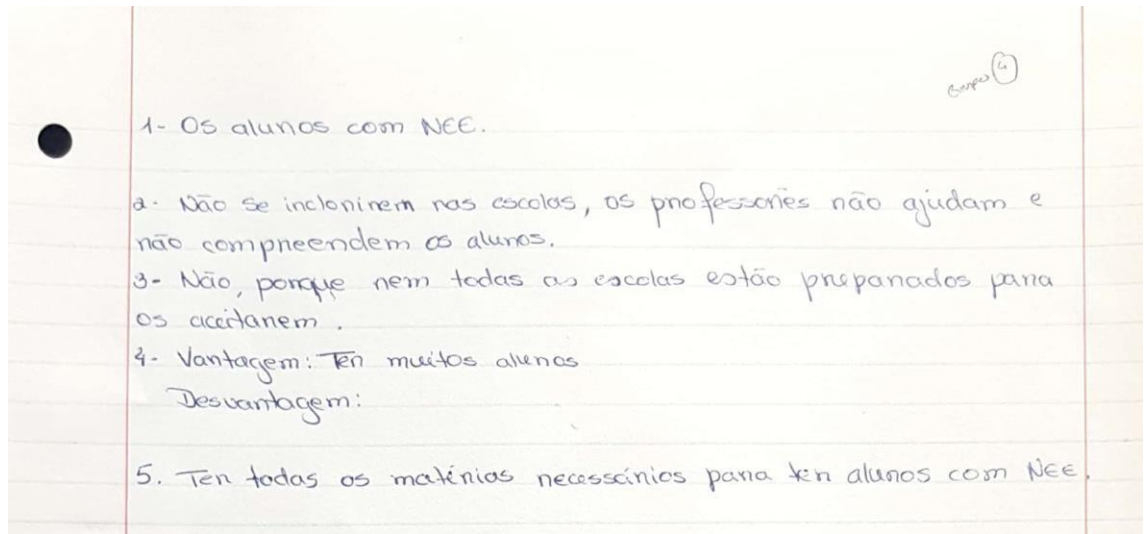 Grupo 4
1- Os alunos com NEE.
2- Não se incloirirem nas escolas, os professores não ajudam e
não compreendem os alunos.
3- Não, porque nem todas as escolas estão preparados para
os aceitarem.
4- Vantagem: Ter muitos alunos
Desvantagem:
5. Ter todas os matérias necessários para ter alunos com NEE.